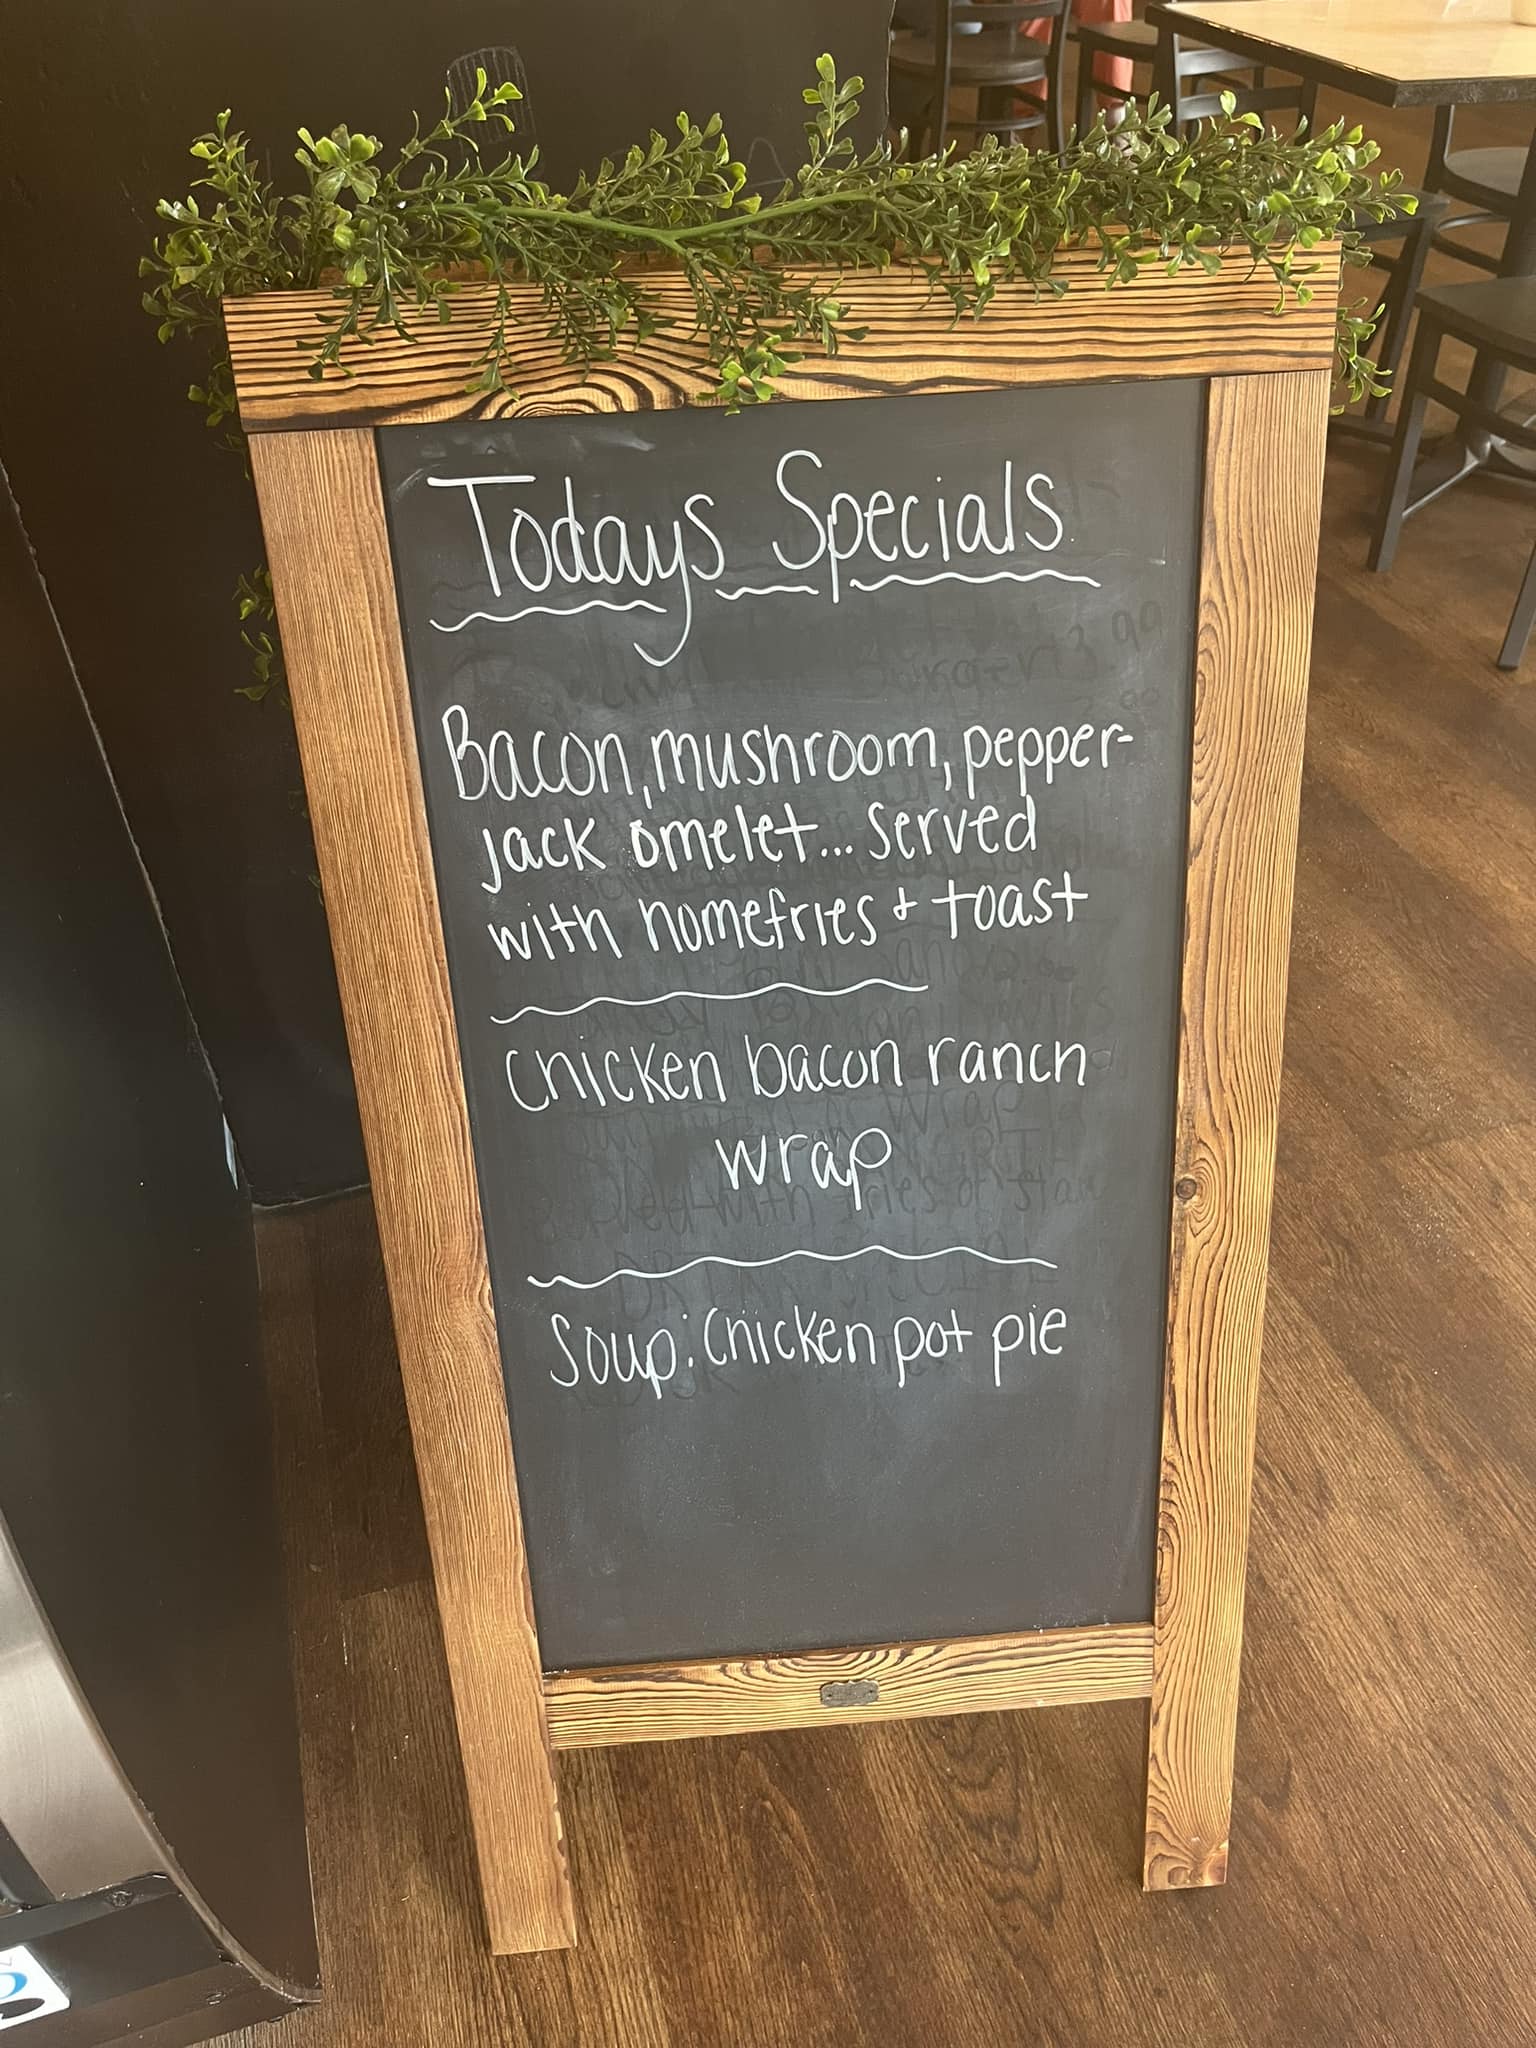 Todays Specials
Bacon, mushroom, pepper-
jack omelet... served
with homefries + toast
Chicken bacon ranch
wrap
Soup: Chicken pot pie